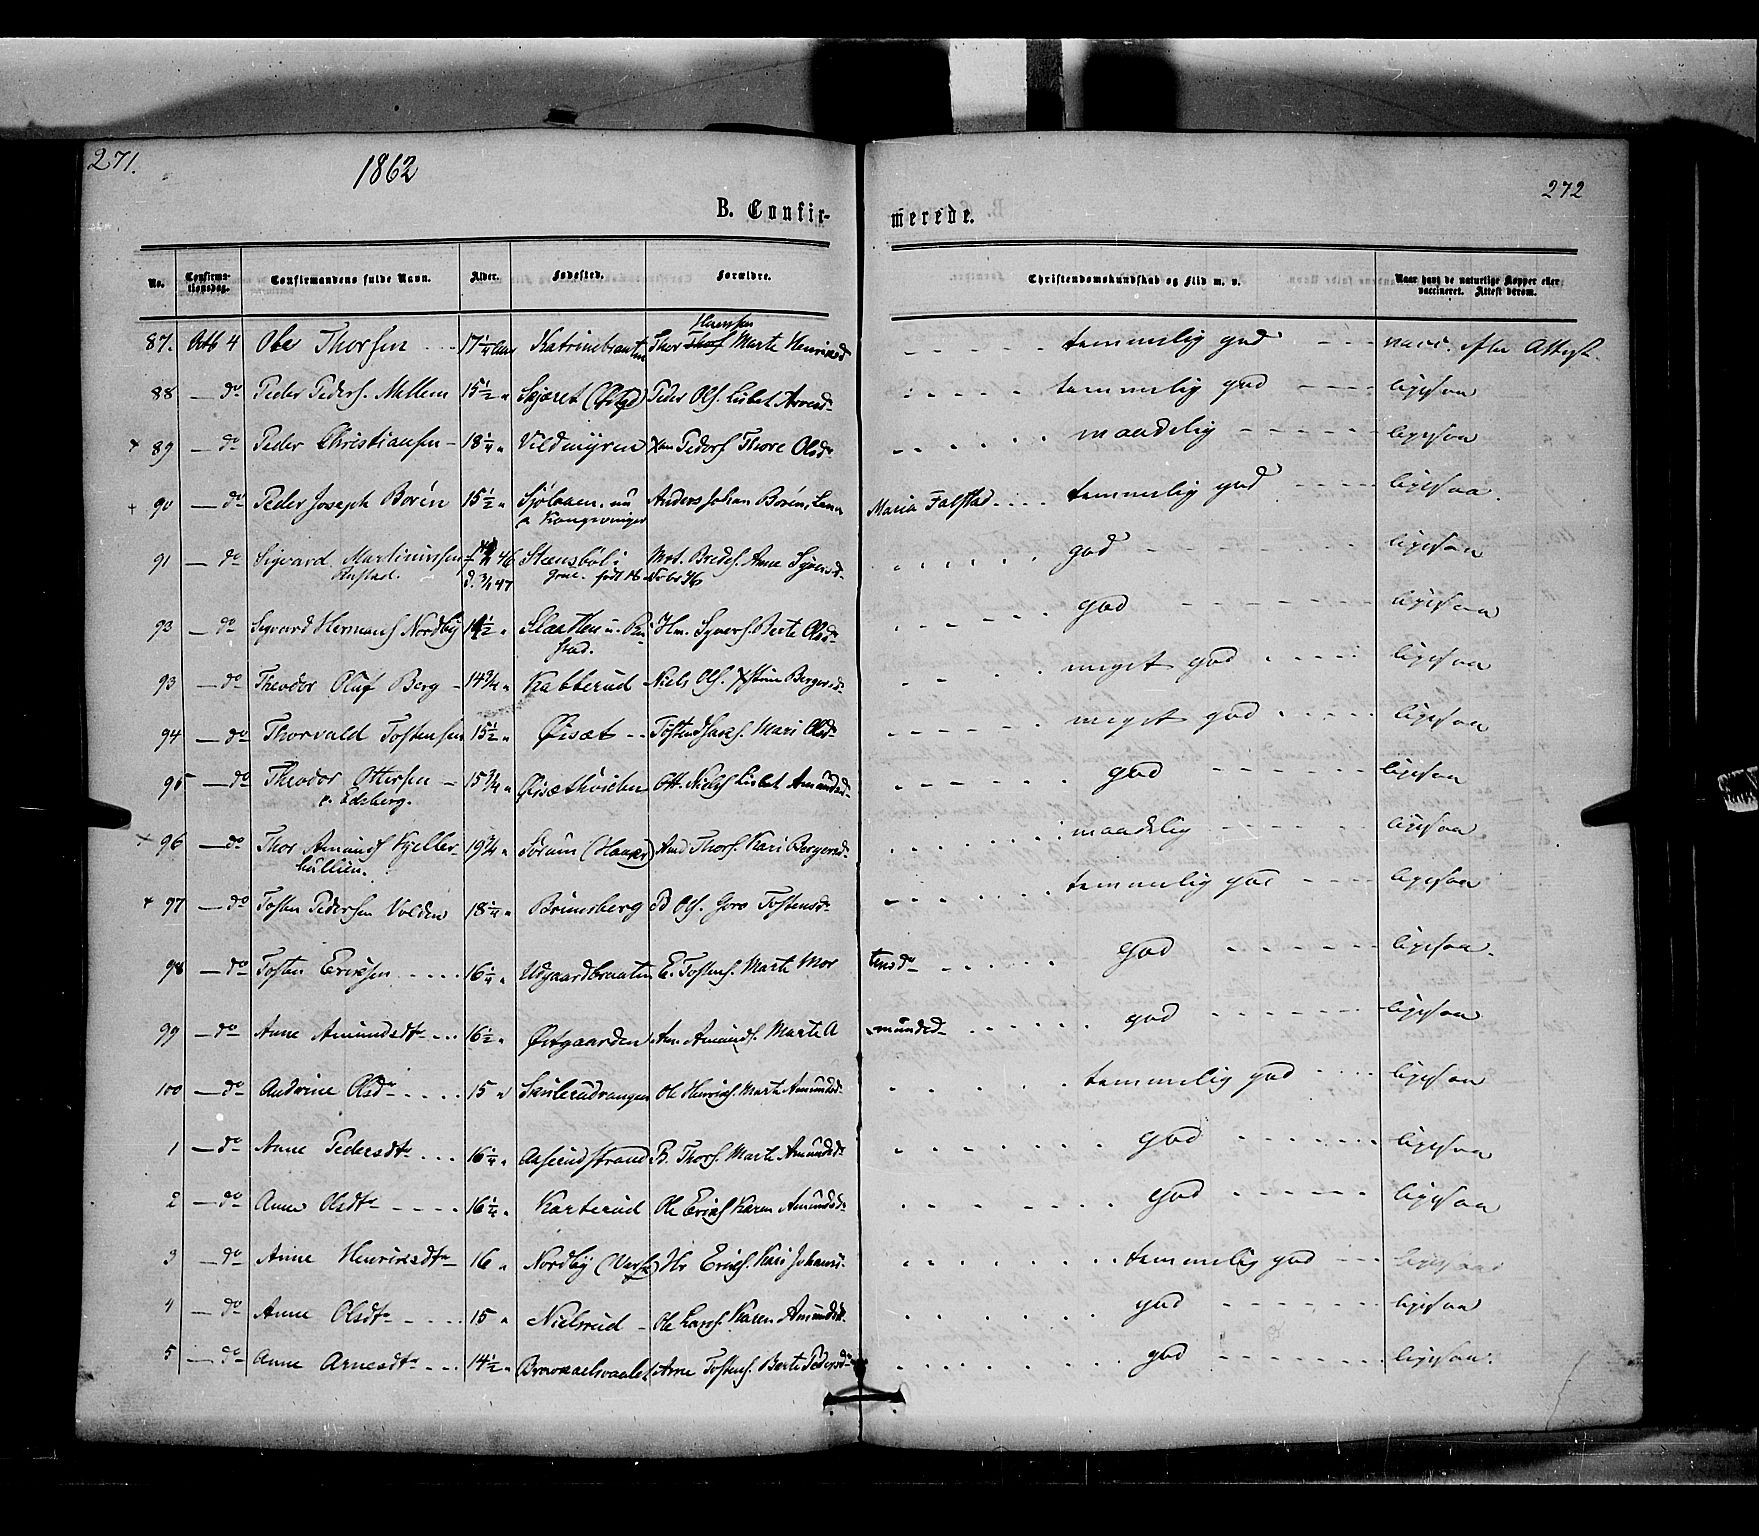 271.
1862
272
B. Confir-
merede.
No. Confirma-tionsdag. Confirmandens fulde Navn. Alder. Fødested. Forældre. Christendomskundskab og Flid m. v. Naar havt de naturlige Kopper eller vaccineret. Attest derom.
Hansen
87. Octb 4 Ole Thorsen 17¼ Aar Katrinebraaten Thor Marte Henriksd temmelig god vacc. efter Attest.
88 — do Peder Peders. Mellem 15½ " Skjæret Peder Ols. Lisbet Arnesd- temmelig god ligesaa
+ 89 — do Peder Christiansen - 18¼ " Vildmyren Peders Thore Olsd- maadelig ligesaa
+ 90 — do Peder Joseph Borén 15½ " nu Anders Johan Borén, Maria Falstad temmelig god ligesaa.
a Kongsvinger
91 — do Sigvard Martiniussen 46 Steensbøl i Mrt. Bredes. Anne Syversd- god ligesaa
Anstad. d. 47 født 16
93 — do Sigvard Hermans Nordby 14½ " Hm. Syvers. Berte Olsd- god ligesaa
stad.
93 — do Theodor Oluf Berg - 14¾ " Kabberud Niels Ols. Bergersd- meget god ligesaa
94 — do Thorvald Tostensen 15½ " Øisæt -- Tosten Mari Olsd- meget god ligesaa
95 — do Theodor Ottersen - 15¾ " Øisæthvilen Ott. Niels Lisbet Amundsd- god ligesaa
e. Edsberg.
+ 96 — do Thor Amunds Kjeller- 19¾ " Sørum Amd Thors. Kari Bergersd- maadelig ligesaa
hullien.
+ 97 — do Tosten Pedersen Volden 18¼ " Brunsberg Pd Ols. Goro Tostensd- temmelig god ligesaa
98 — do Tosten Eriksen 16¼ " Udgaardbraaten E. Tostens. Marte Mor tensd- god ligesaa.
99 — do Anne Amundsdtr 16½ " Østgaarden Amunds. Marte A -mundsd- god ligesaa
100 — do Andrine Olsd- 15 " Skulerudvangen Ole Henriks. Marte Amundsd- temmelig god ligesaa
1 — do Anne Pedersdtr 16¼ " Aaserudstrand P. Thors. Marte Amundsd- god ligesaa
2 — do Anne Olsdtr 16¼ " Karterud Ole Eriks Karen Amundsd- god ligesaa
3 — do Anne Henriksdtr 16 " Nordby Hr Eriks. Kari Johans. temmelig god ligesaa
4 — do Anne Olsdtr 15 " Nielsrud - Ole Lars. Karen Amundsd. god ligesaa
5 — do Anne Arnesdtr 14½ " Arne Tostens. Berte Pedersd- god ligesaa.